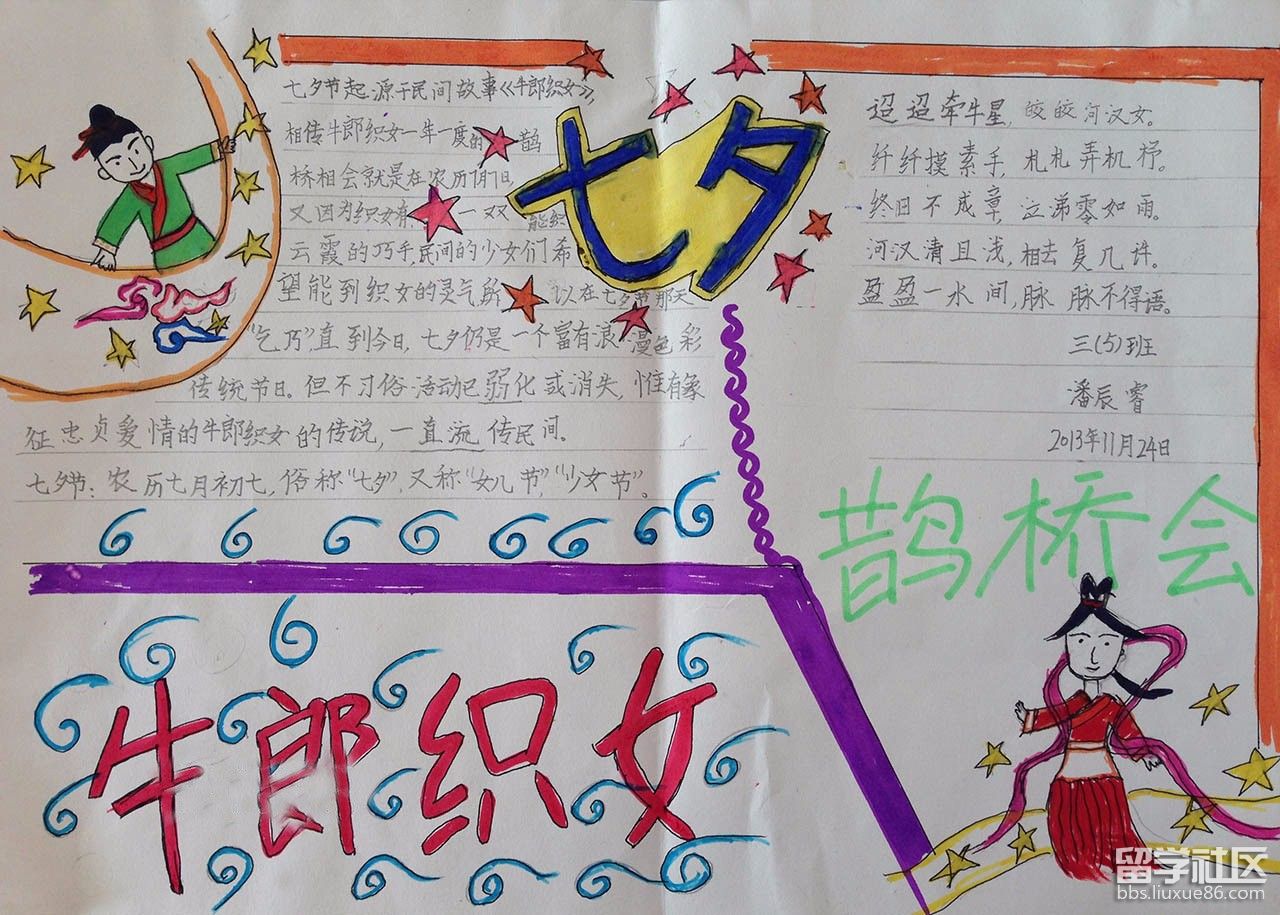 七夕节起源于民间故事《牛郎织女》,
相传牛郎织女一年一度的鹊
桥相会就是在农历7月7日
又因为织女有一双能织
云霞的巧手,民间的少女们希
望能到织女的灵气所以在七夕节那天
"乞巧"直到今日,七夕仍是一个富有浪漫色彩
传统节日。但不习俗活动已弱化或消失,惟有象
征忠贞爱情的牛郎织女的传说,一直流传民间。
七夕节:农历七月初七,俗称"七夕",又称"女儿节","少女节"。
七夕
迢迢牵牛星,皎皎河汉女。
纤纤摸素手,札札弄机杼。
终日不成章,泣涕零如雨。
河汉清且浅,相去复几许。
盈盈一水间,脉脉不得语。
三(5)班
潘辰睿
2013年11月24日
鹊桥会
牛郎织女
留学社区
bbs.liuxue86.com